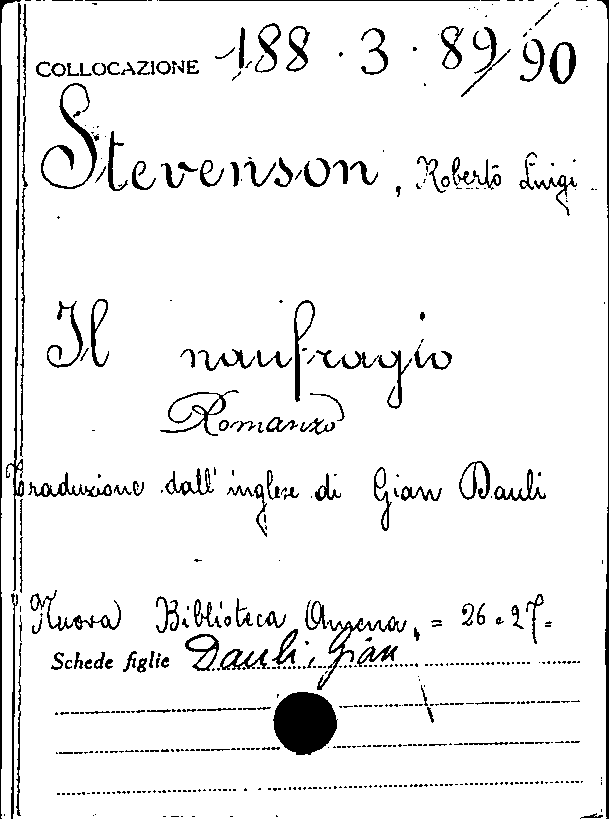 COLLOCAZIONE 188 . 3 . 89/90
Stevenson, Roberto Luigi
Il naufragio
Romanzo
Traduzione dall'inglese di Gian Dauli
Nuova Biblioteca Amena, = 26 e 27 =
Schede figlie Dauli, Gian